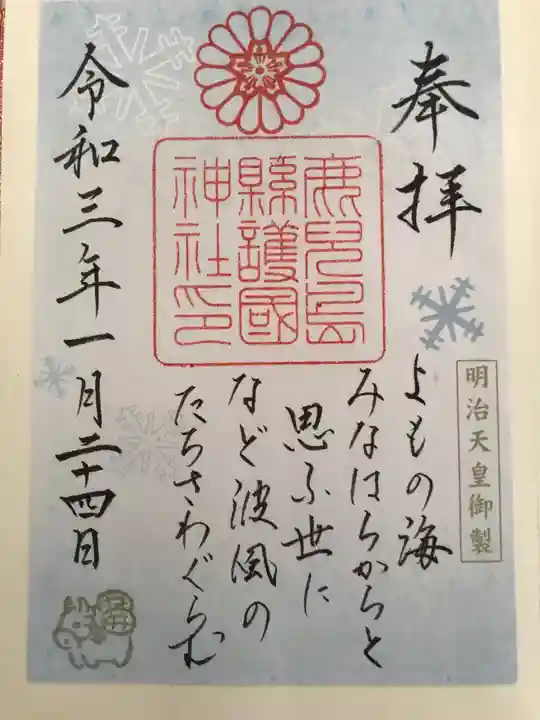 奉拝
明治天皇御製
よもの海
みなはらからと
思ふ世に
など波風の
たちさわぐらむ
鹿兒島
縣護國
神社印
令和三年一月二十四日